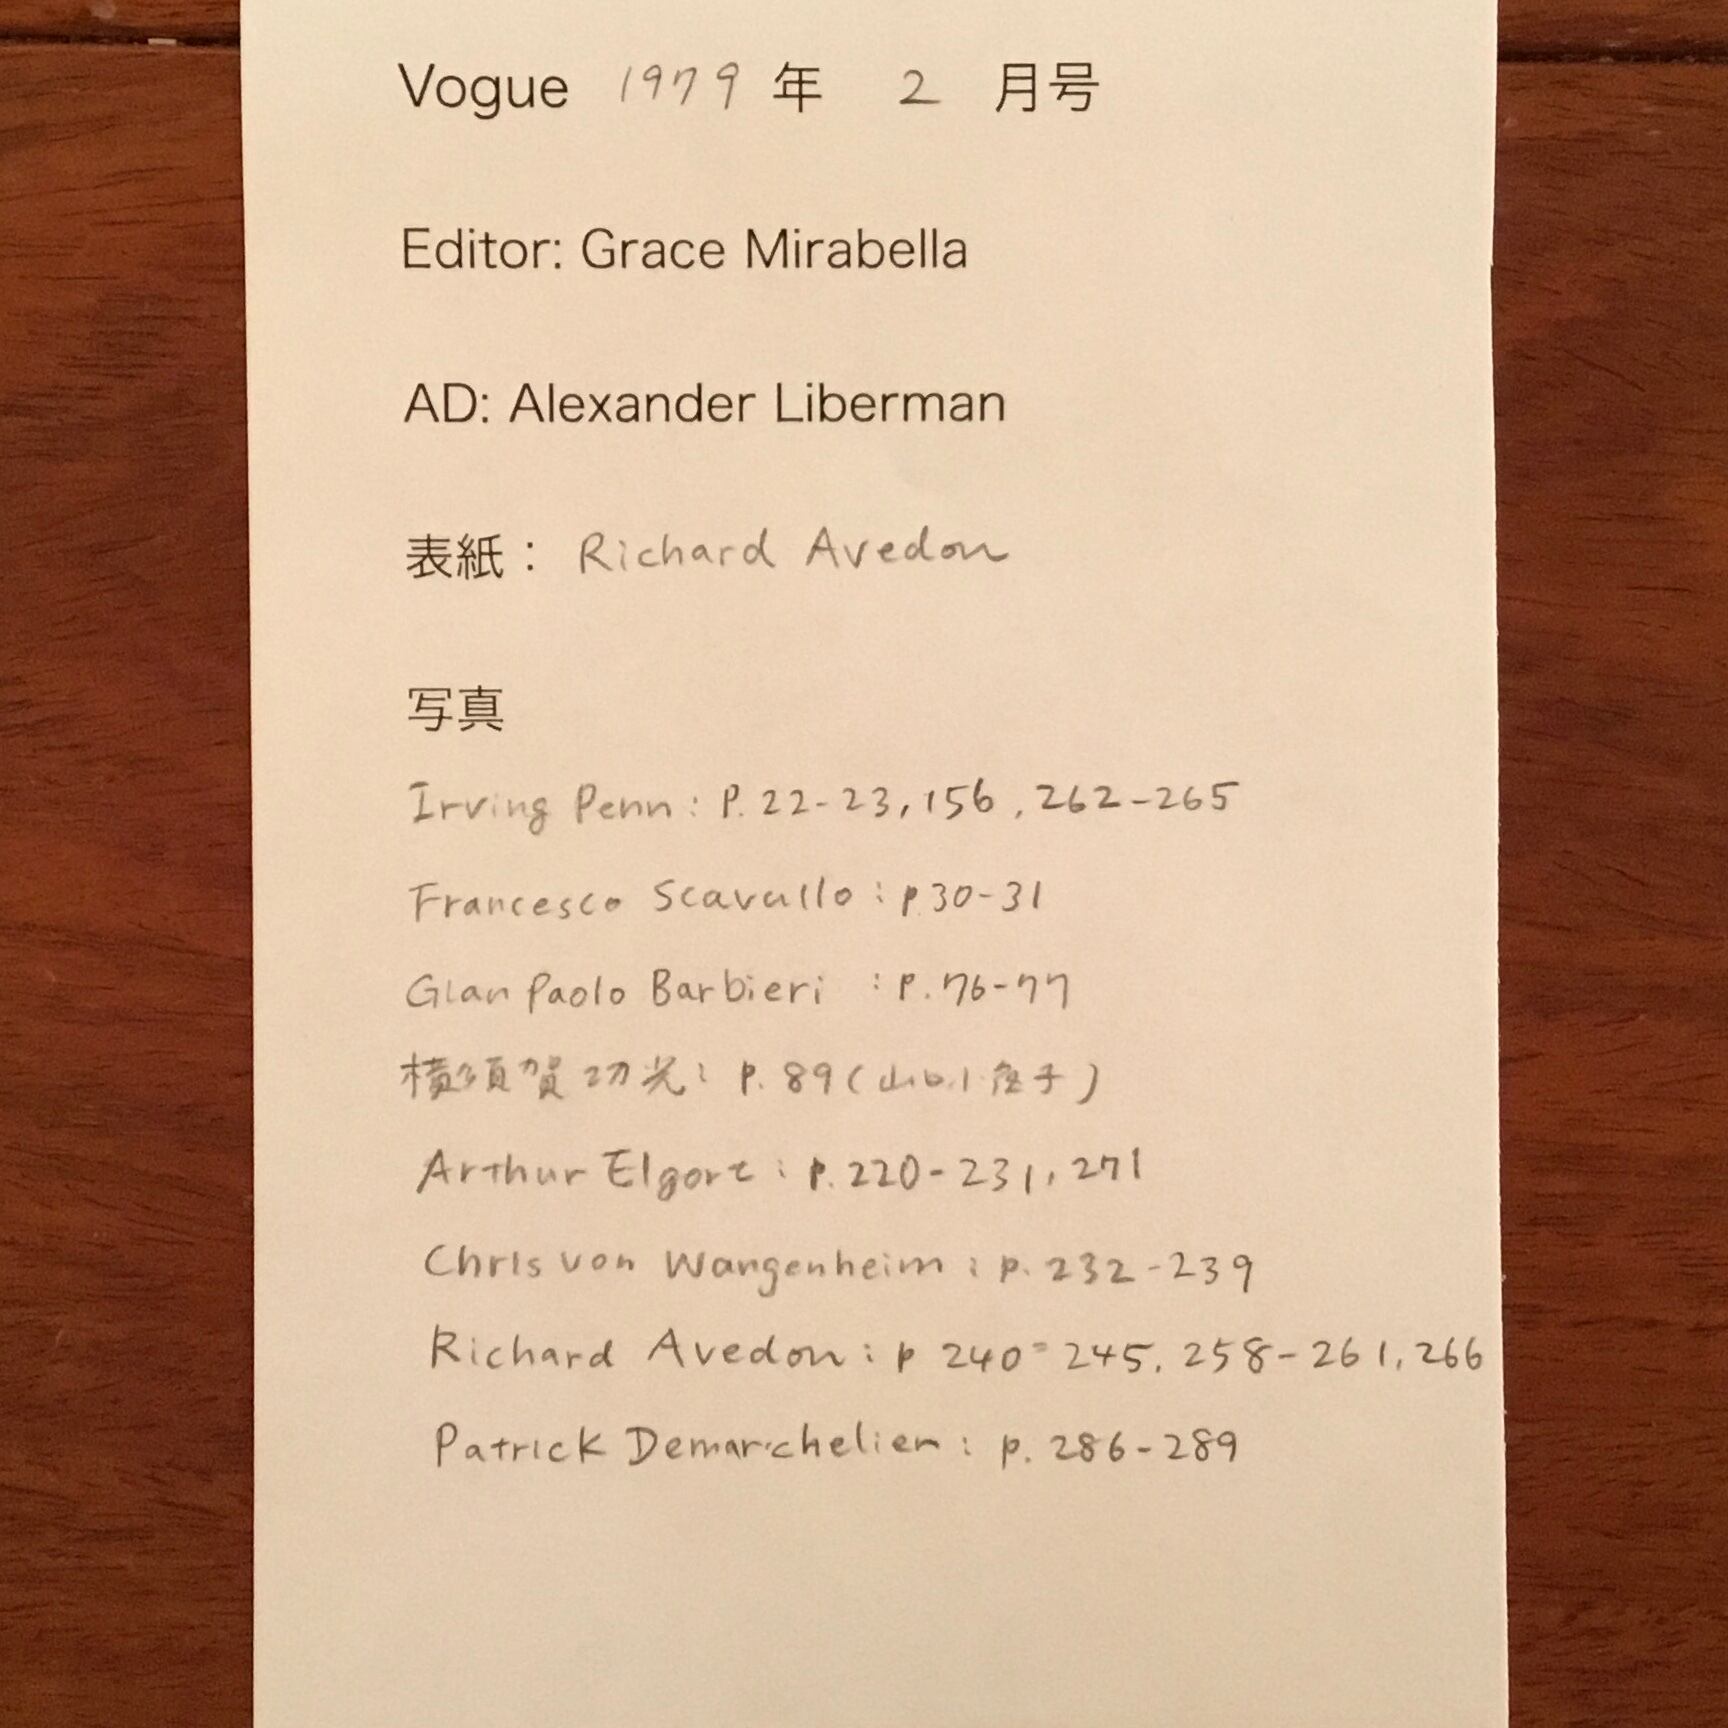 Vogue 1979 年 2 月号
Editor: Grace Mirabella
AD: Alexander Liberman
表紙： Richard Avedon
写真
Irving Penn : P. 22-23, 156, 262-265
Francesco Scavullo : p.30-31
Gian Paolo Barbieri : P. 76-77
横須賀功光 : p. 89 (山口小夜子)
Arthur Elgort : p. 220-231, 271
Chris von Wangenheim : p. 232-239
Richard Avedon : p 240-245, 258-261, 266
Patrick Demarchelier : p. 286-289